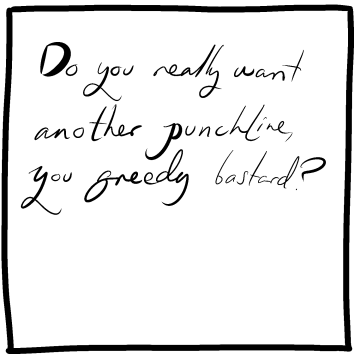 Do you really want
another punchline,
you greedy bastard?